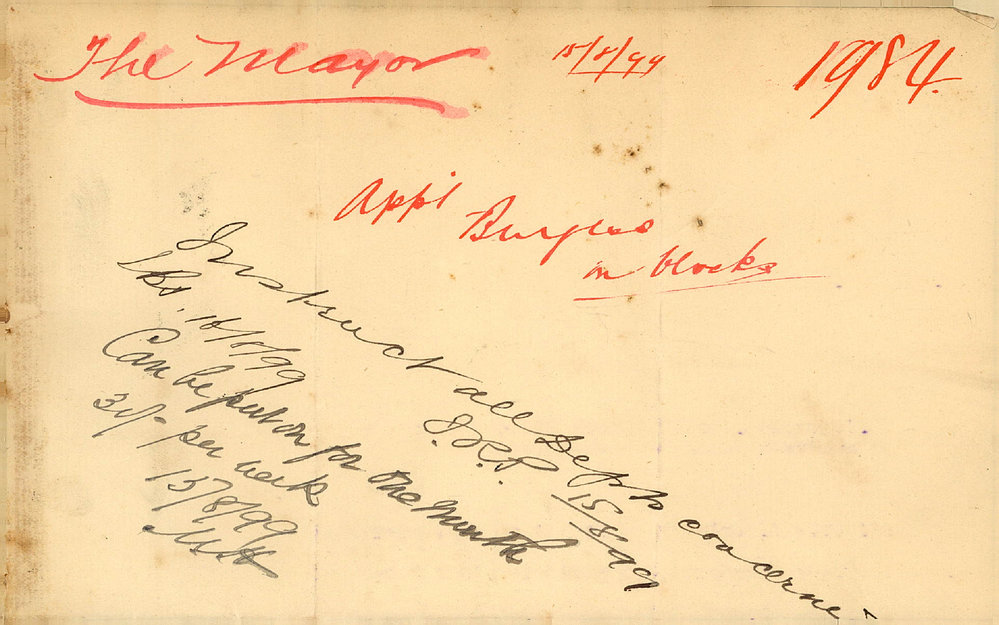 The Mayor
15/8/99
1984.
Appt
Burgess
on blocks
Instruct all Depts concerne-
J.R.P. 15/8/99
16/8/99
Can be put on for one month
per week
15/8/99